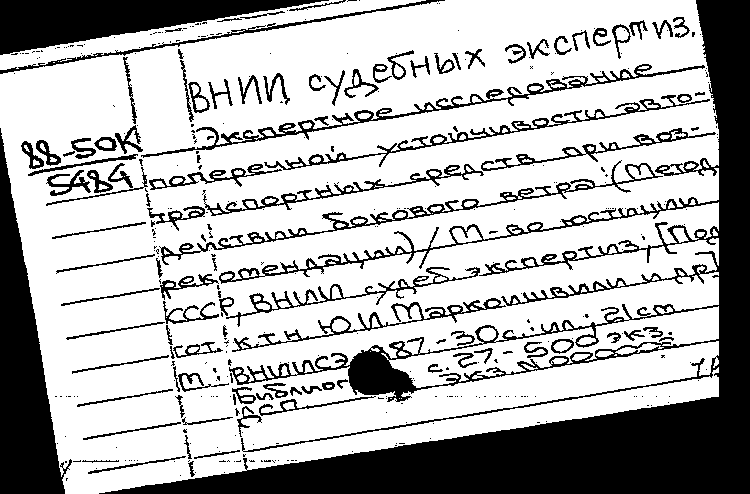 ВНИИ судебных экспертиз.
88-50К
5484
Экспертное исследование
поперечной устойчивости авто-
транспортных средств при воз-
действии бокового ветра: (Метод.
рекомендации) / М-во юстиции
СССР, ВНИИ судеб. экспертиз; [Под
гот. к.т.н. Ю.И. Маркоишвили и др]
М: ВНИИСЭ 87.-30 с.: ил.; 21 см
Библиог с. 27.- 500 экз.
ДСП экз. N 000005